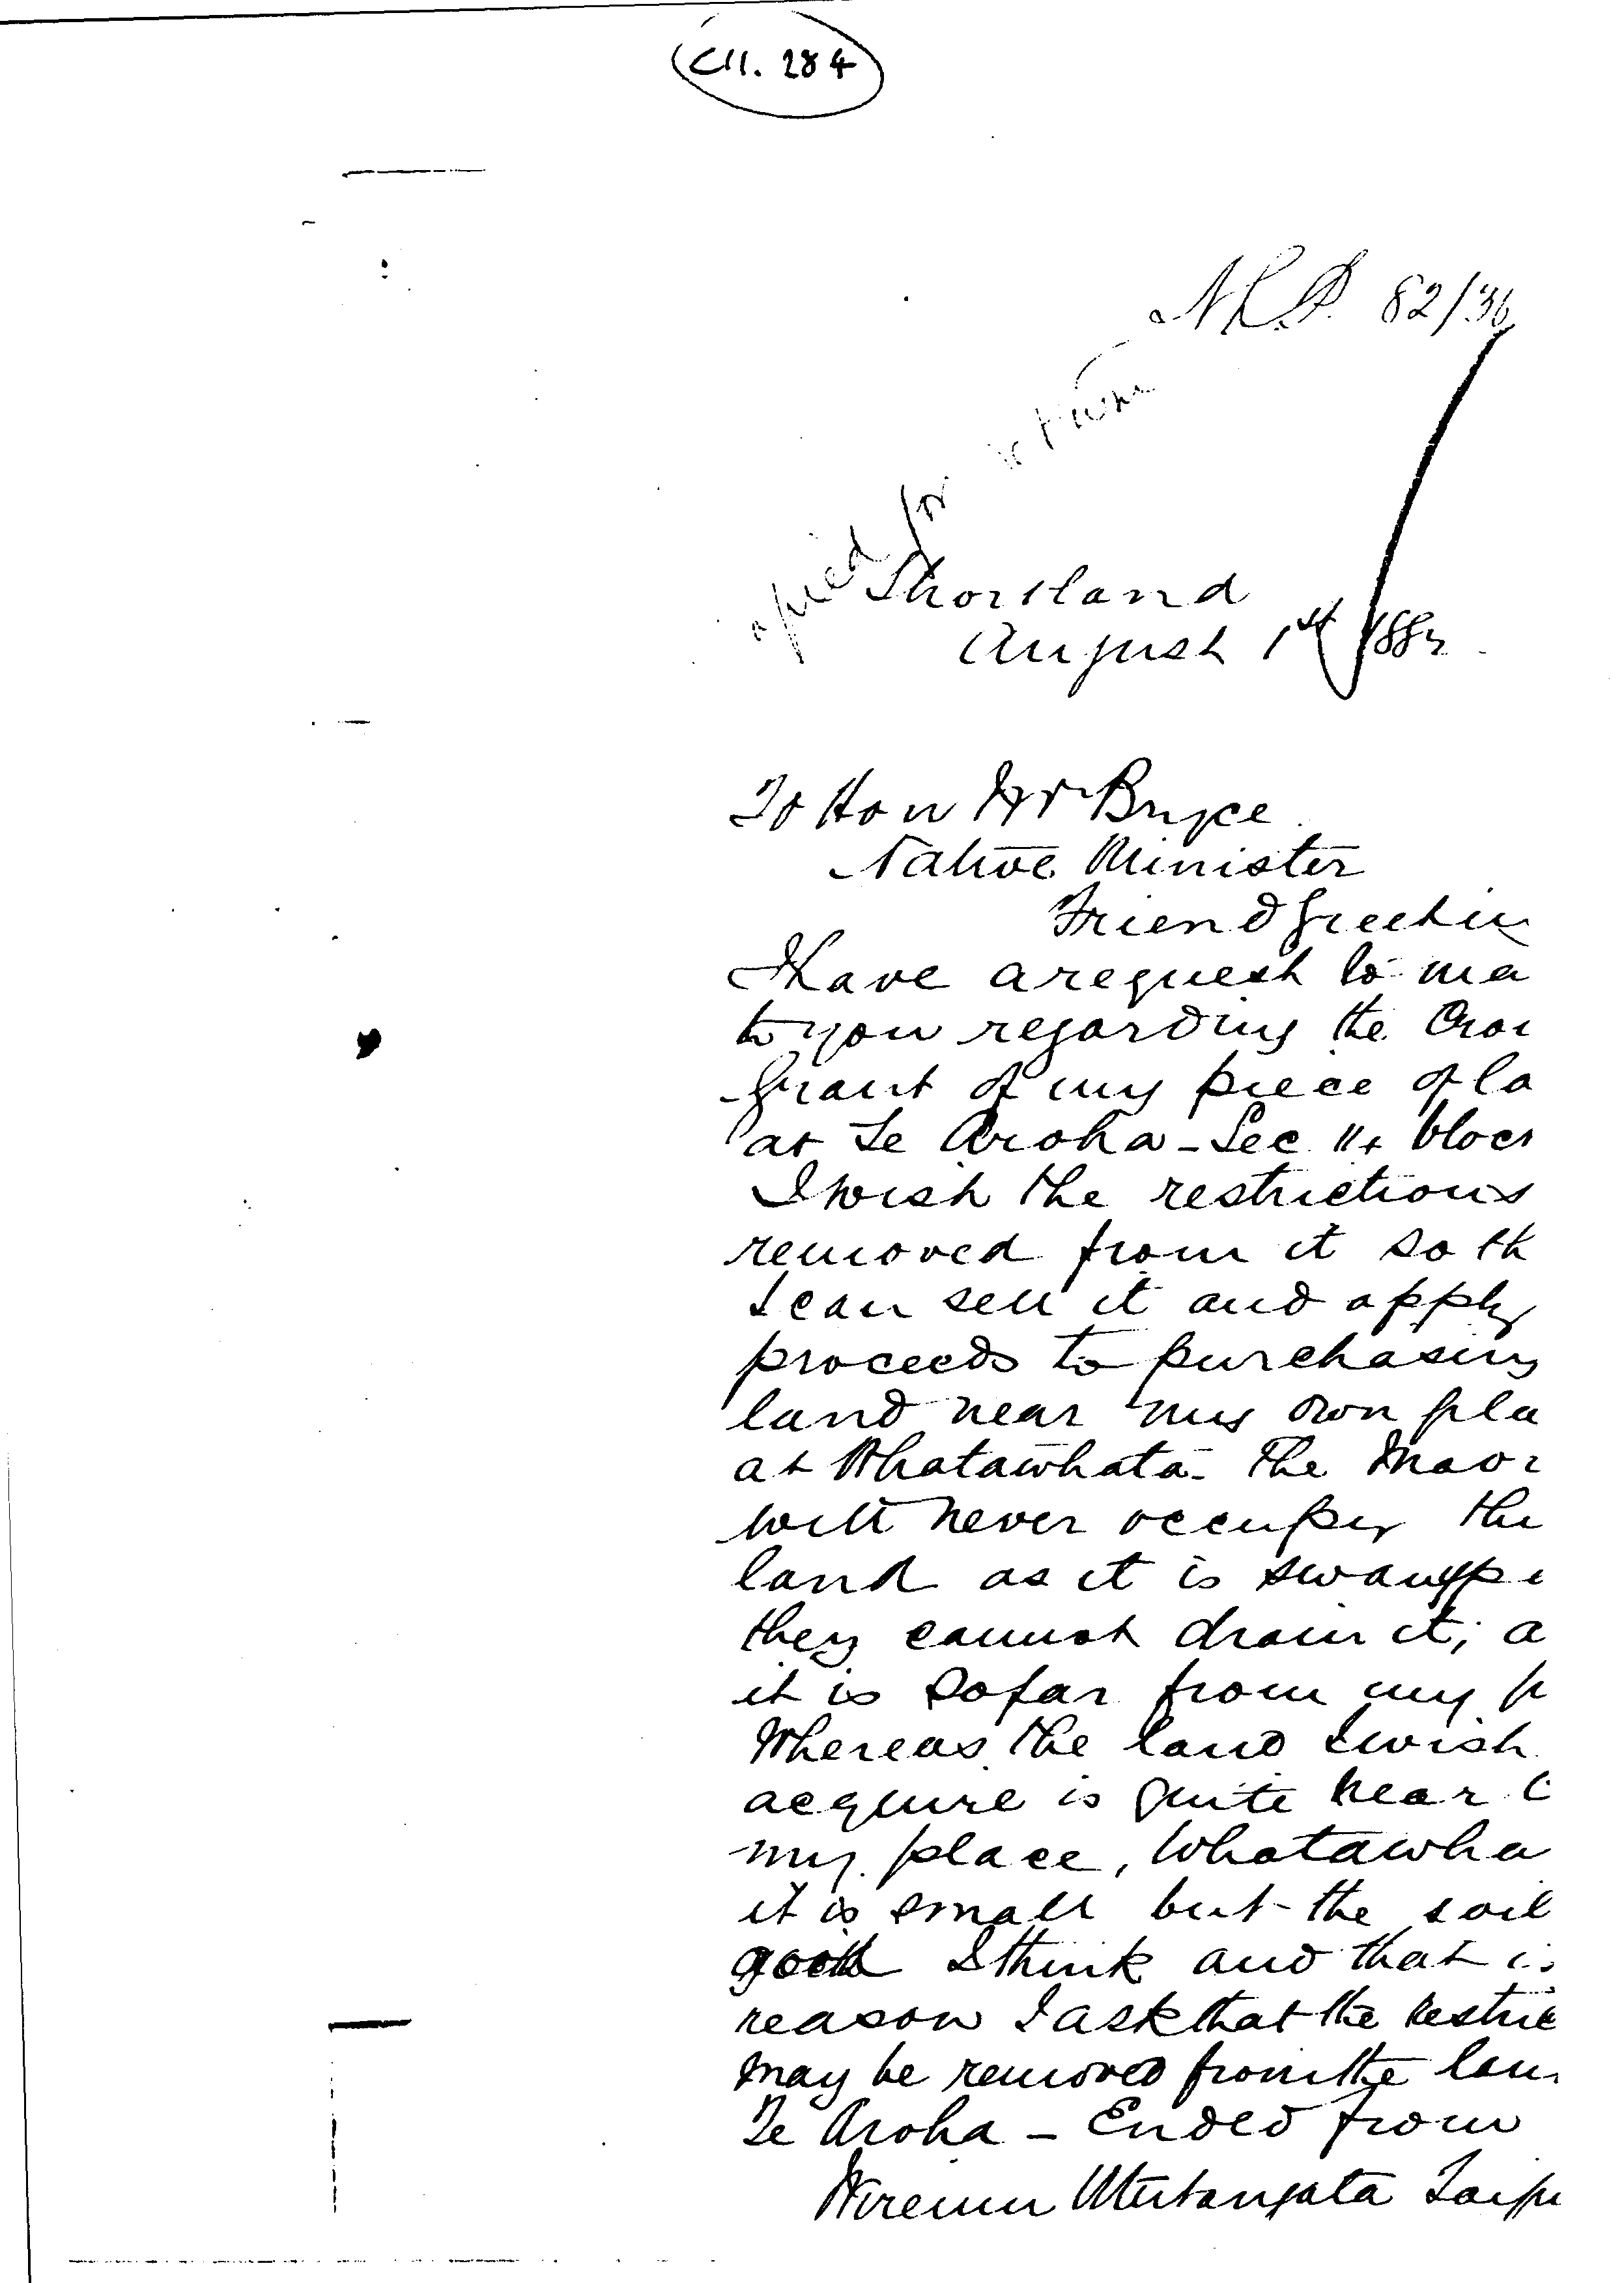 C11. 284
N.L.P. 82/36
for return
Shortland
August 1st 1882
To Hon Mr Bryce
Native Minister
Friend Greetin
I have a request to ma
to you regarding the Crow
Grant of my piece of la
at Te Aroha - Sec 11 block
I wish the restrictions
removed from it so th
I can sell it and apply
proceeds to purchasing
land near my own pla
at Whatawhata - The Maor
will never occupy the
land as it is swampy
they cannot drain it; a
it is so far from my p
Whereas the land I wish
acquire is quite near t
my place, Whatawha
it is small but the soil
good I think and that is
reason I ask that the restric
may be removed from the lan
Te Aroha - Ended from
Wiremu Ututangata Taipu